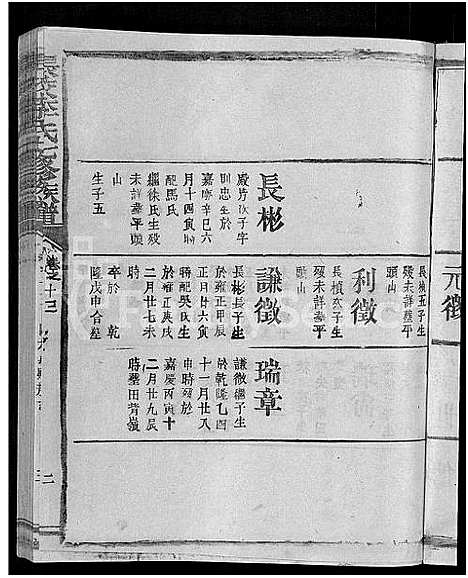 元徵
長楨五子生
歿未詳葬平
頭山
利徵
長楨玄子生
歿未詳葬平
頭山
長彬
訓忠生於
月十四寅時
配馬氏
繼徐氏生歿
未詳葬平頭
山
生子五
謙徵
長彬長子生
於雍正甲辰
正月廿六寅
時配吳氏生
於雍正庚戌
二月廿七未
時
卒於乾
隆戊申合葬
瑞章
謙徵繼子生
於乾隆乙酉
十一月廿八
申時歿於
嘉慶丙寅十
二月廿九辰
時葬田背嶺
李氏六修族譜
卷之十三
二